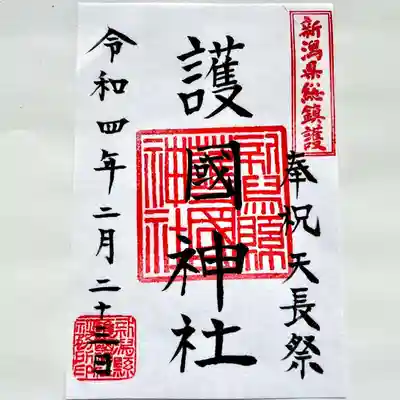 新潟県総鎮護
奉祝天長祭
護國神社
令和四年二月二十三日
新潟縣護國神社